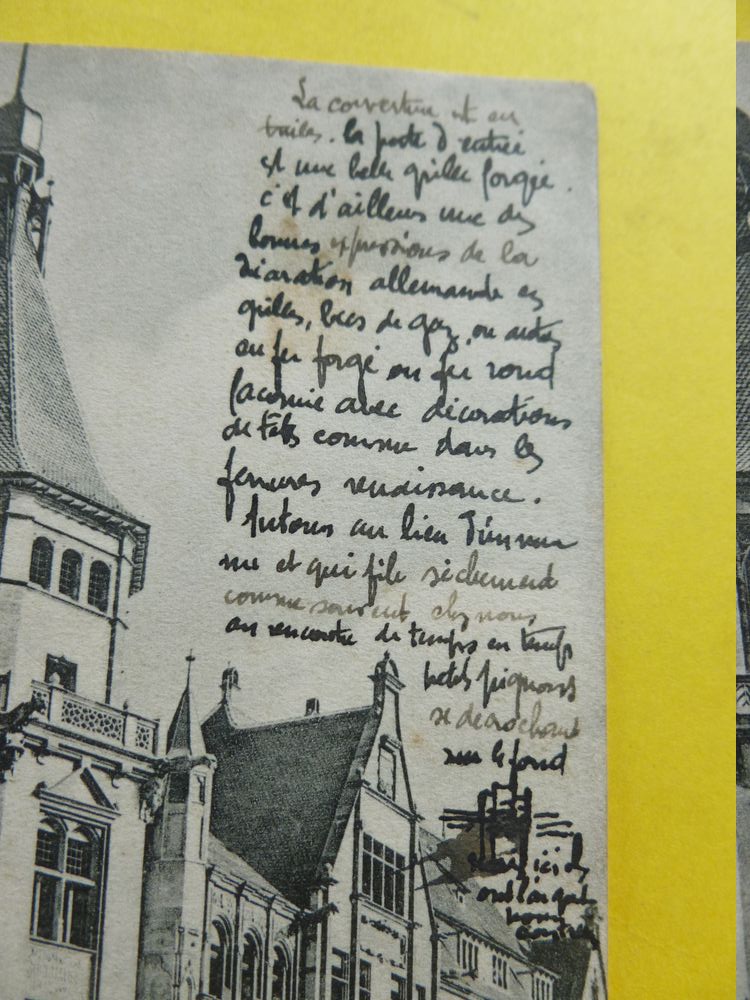 La couverture est en
tuiles. la porte d'entrée
est une belle grille forgée.
c'est d'ailleurs une des
bonnes expressions de la
décoration allemande les
grilles, becs de gaz, ou autres
en fer forgé ou fer rond
façonné avec décorations
de têtes comme dans les
ferrures renaissance.
au lieu d'un mur
nu et qui file sèchement
comme souvent chez nous
on rencontre de temps en temps
petits pignons
se décrochant
sur le fond
ici